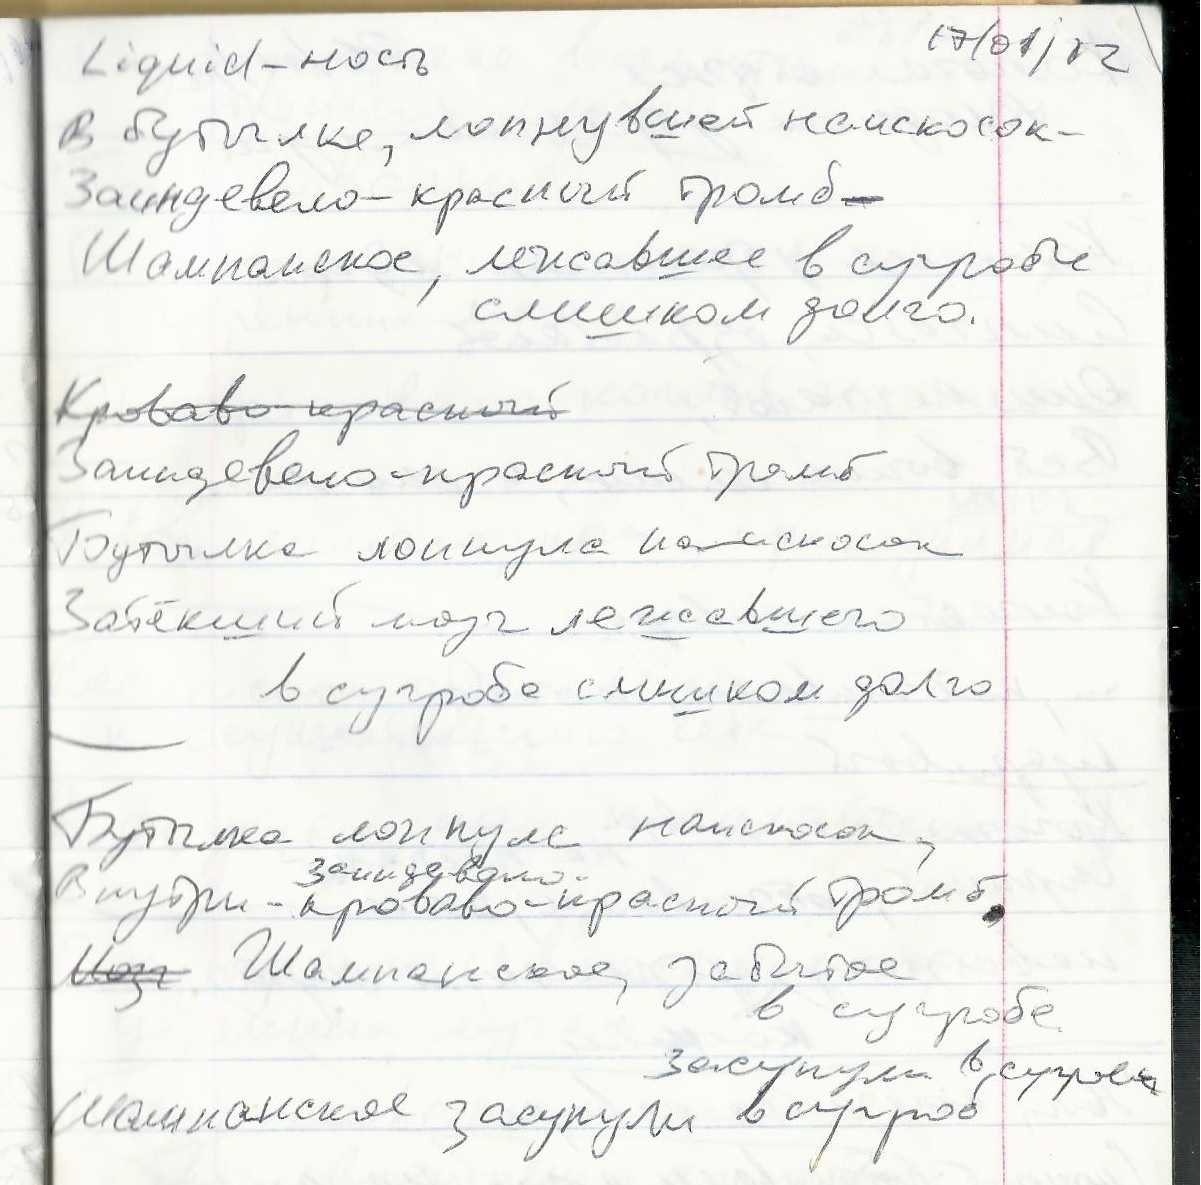 17/01/12
Liquid-ность
В бутылке, лопнувшей наискосок-
Заиндевело-красный тромб-
Шампанское, лежавшее в сугробе
слишком долго.
Кроваво-красный
Заиндевело-красный тромб
Бутылка лопнула наискосок
Затёкший мозг лежавшего
в сугробе слишком долго
Бутылка лопнула наискосок,
заиндевело-
Внутри - кроваво-красный тромб,
Мозг Шампанское, забытое
в сугробе
засунули в сугроб
Шампанское засунули в сугроб